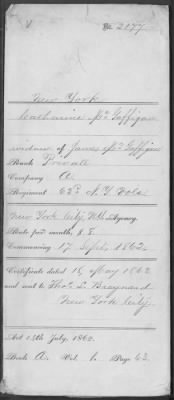 No. 2177
New York
Catharine Mc Goffigan
widow of James Mc Goffigan
Rank Private
Company A.
Regiment 63d N.Y. Vols
New York City, N.Y. Agency.
Rate per month, $ 8
Commencing 17 Sept. 1862.
Certificate dated 15 May 1863
and sent to Thos. L. Braynard
New York City.
Act 14th July, 1862.
Book A. Vol. 1. Page 63.